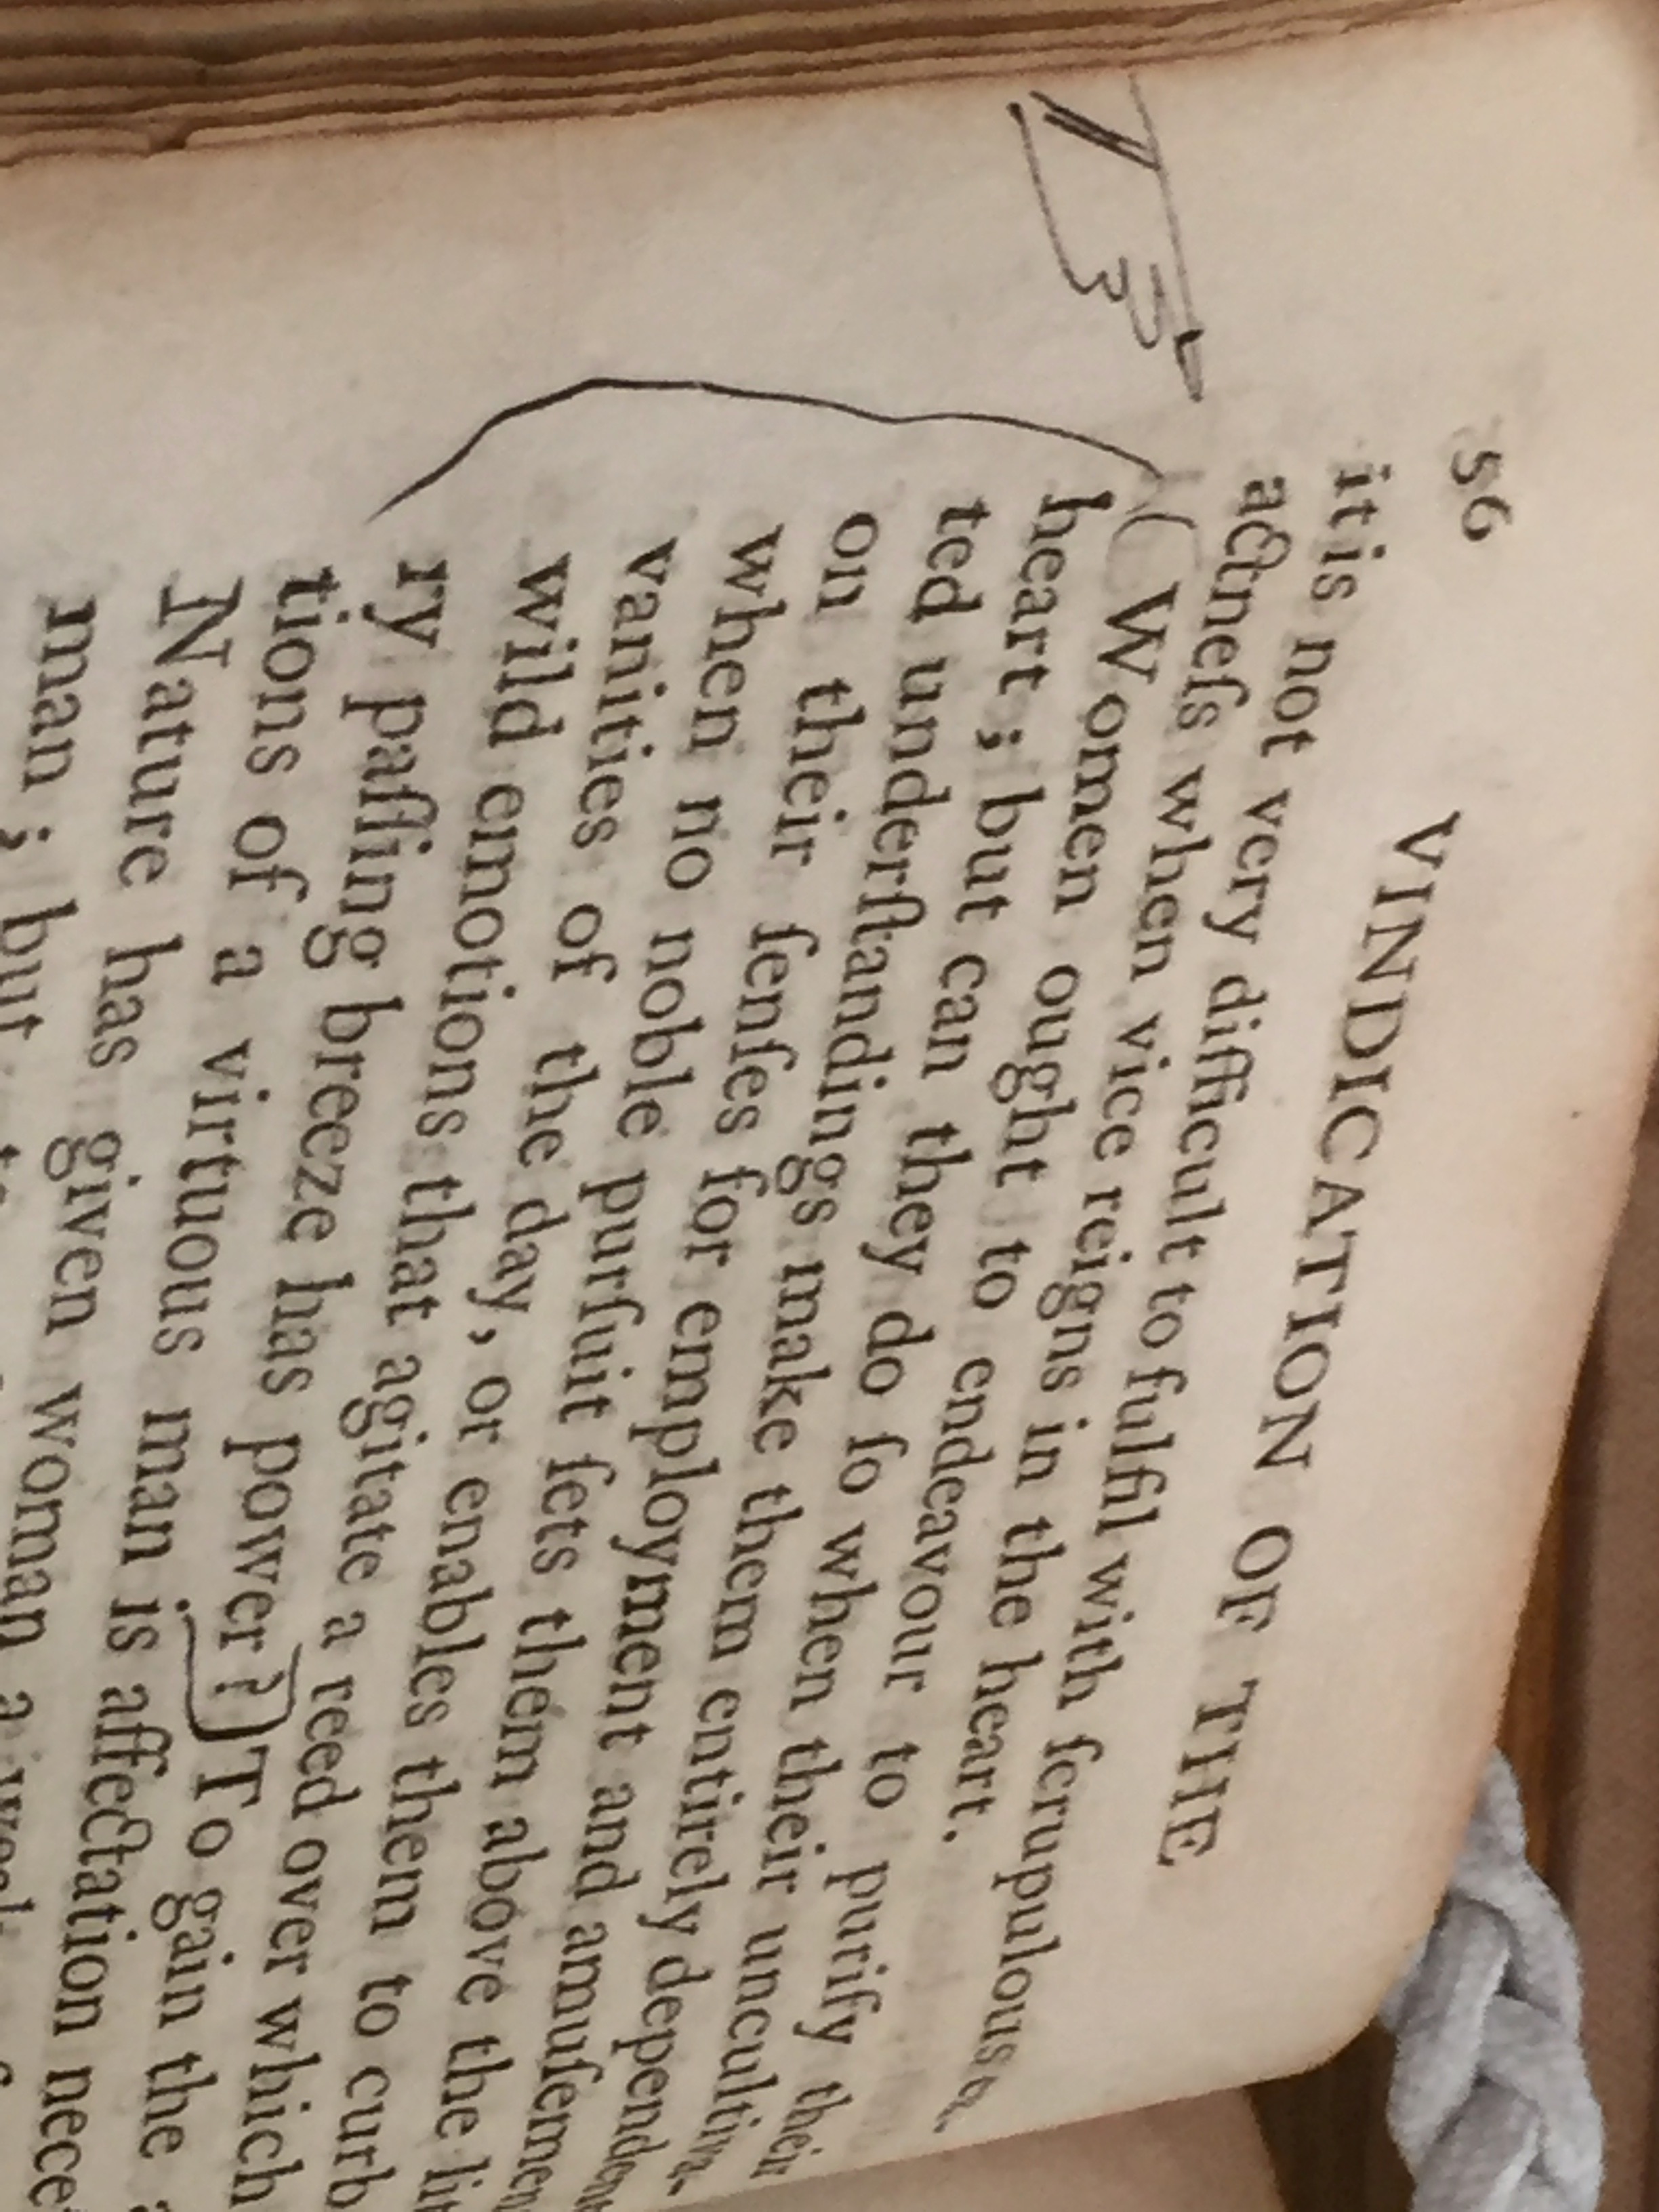 56 VINDICATION OF THE
it is not very difficult to fulfil with ſcrupulous
actneſs when vice reigns in the heart.
( Women ought to endeavour to purify their
heart ; but can they do ſo when their uncultiva-
ted underſtandings make them entirely dependent
on their ſenſes for employment and amuſemen
when no noble purſuit ſets them above the lit
vanities of the day, or enables them to curb
wild emotions that agitate a reed over which
ry paſſing breeze has power?) To gain the
tions of a virtuous man is affectation nece
Nature has given woman a
man ; but